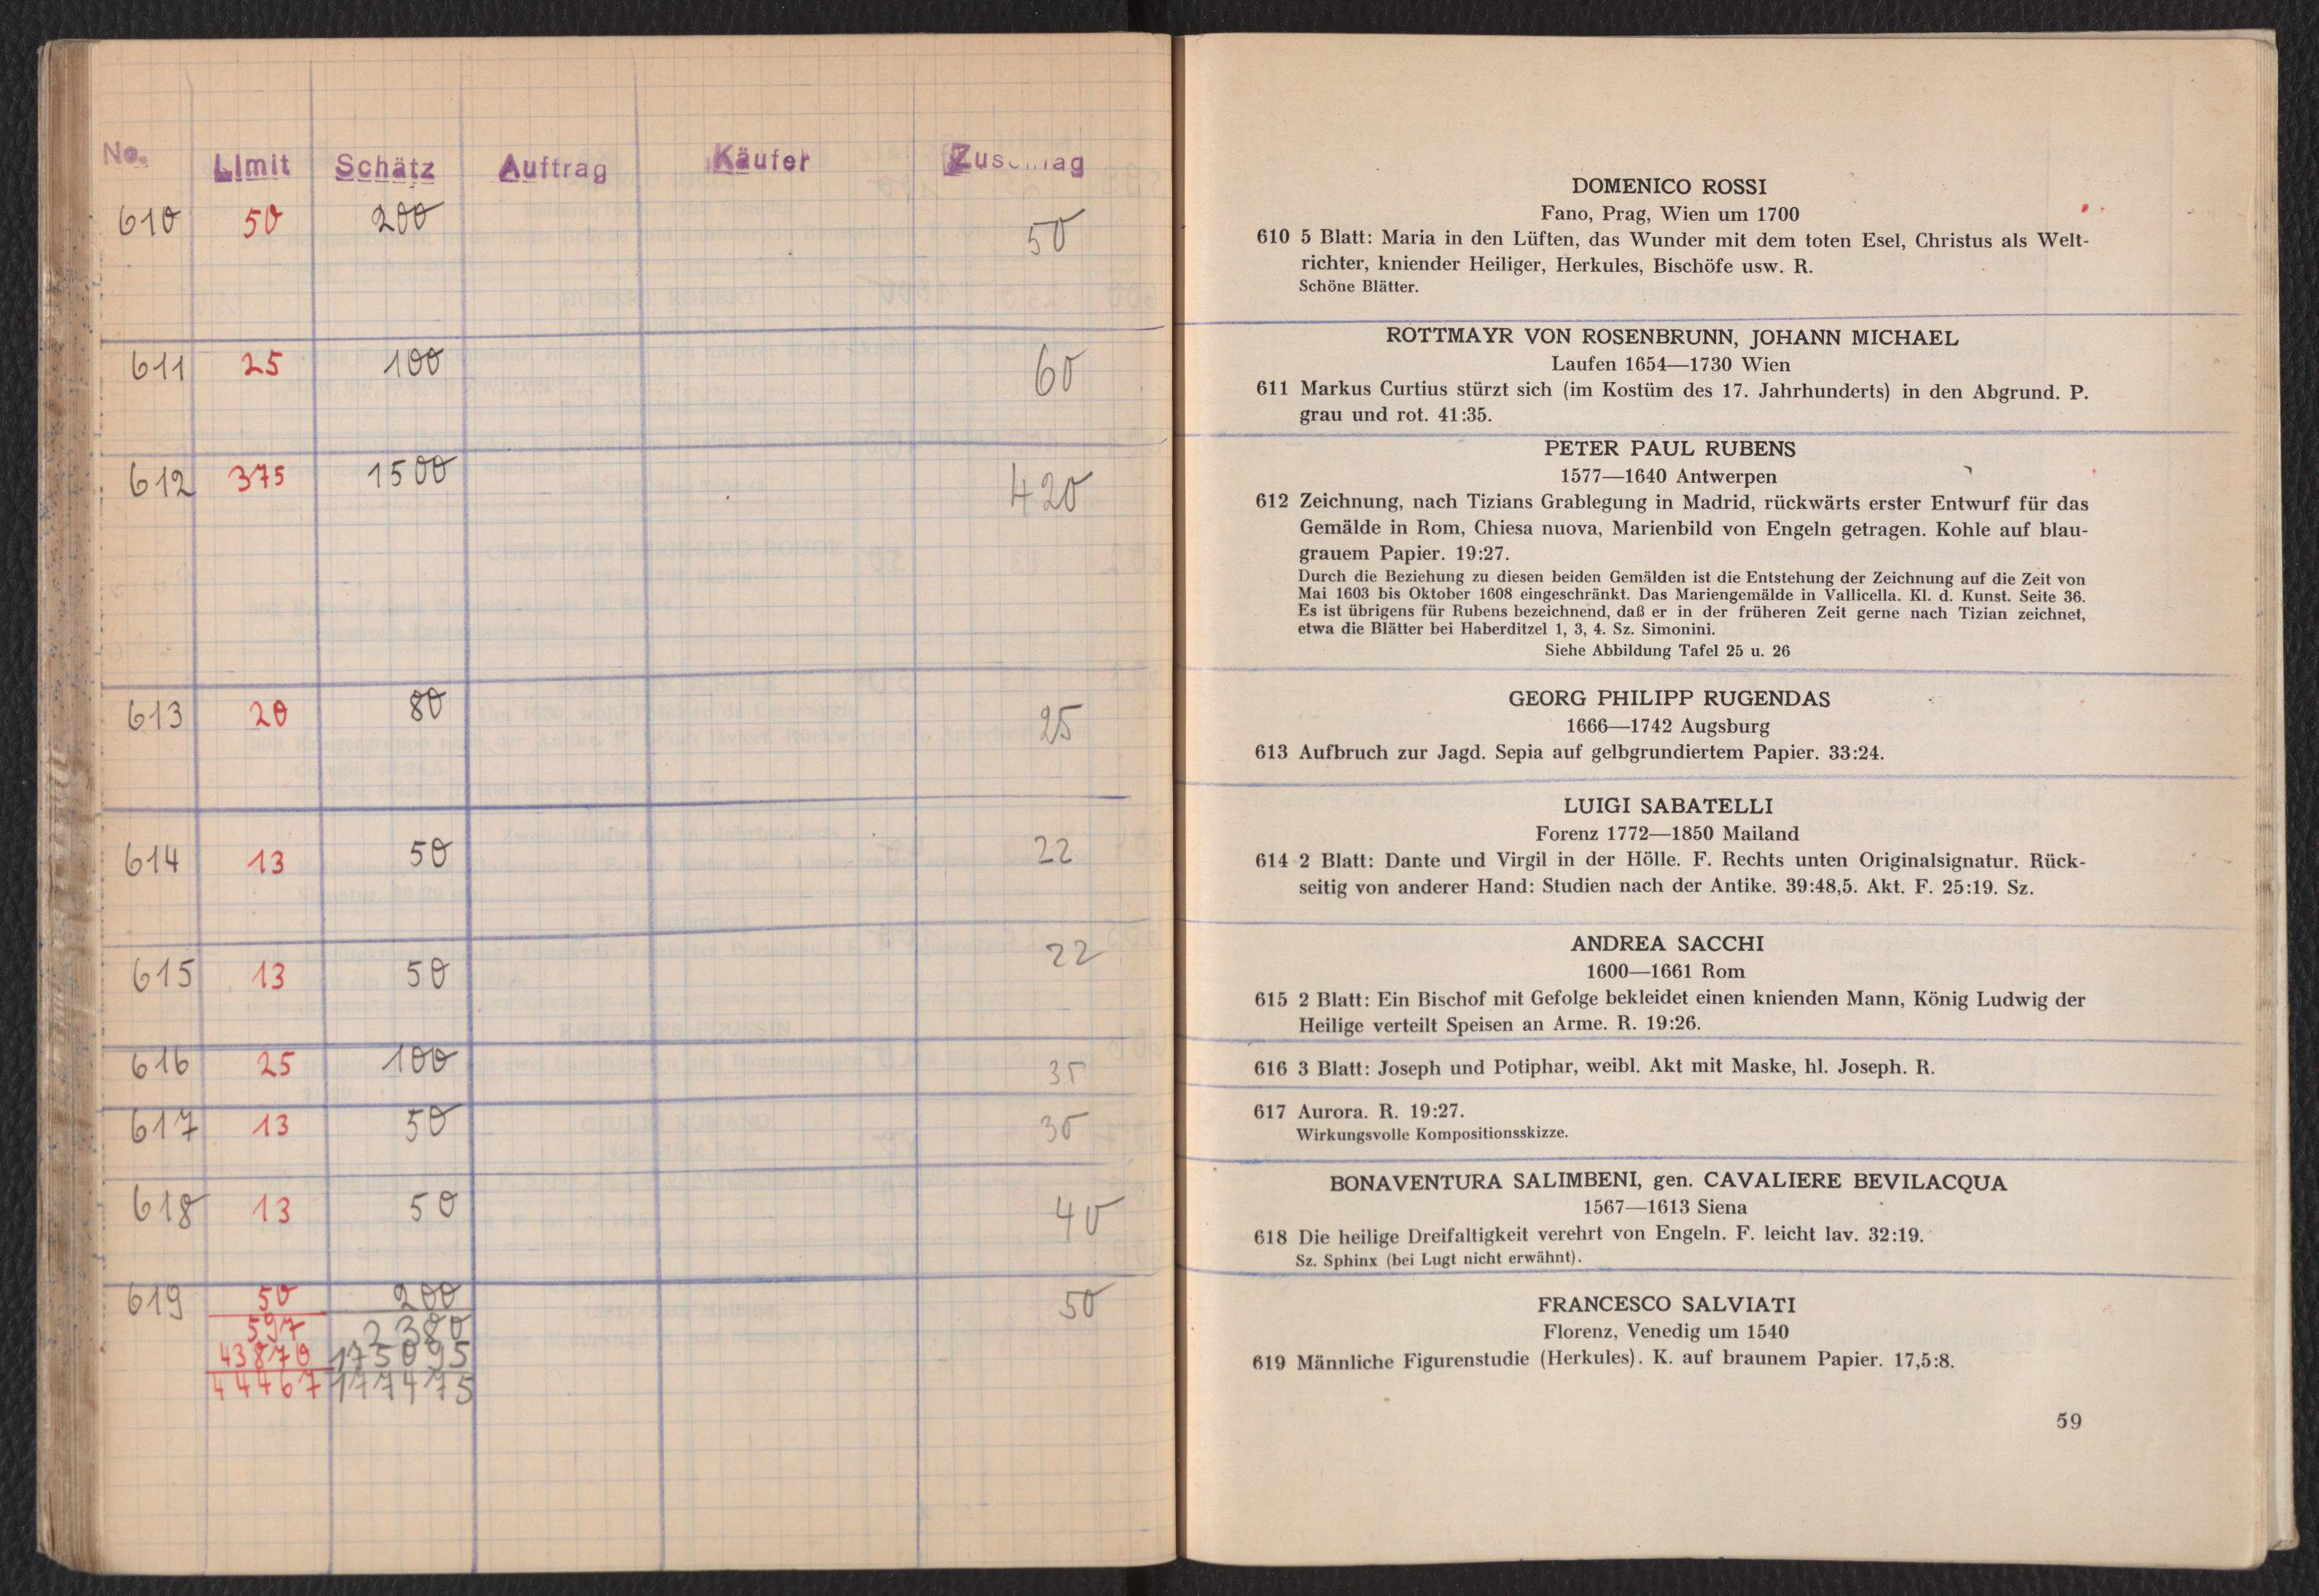 No. Limit Schätz Auftrag Käufer Zuschlag
610 50 200 50
611 25 100 60
612 375 1500 420
613 20 80 25
614 13 50 22
615 13 50 22
616 25 100 35
617 13 50 30
618 13 50 40
619 50 200 50
597 2380
43870 175095
44467 177475
DOMENICO ROSSI
Fano, Prag, Wien um 1700
610 5 Blatt: Maria in den Lüften, das Wunder mit dem toten Esel, Christus als Welt-
richter, kniender Heiliger, Herkules, Bischöfe usw. R.
Schöne Blätter.
ROTTMAYR VON ROSENBRUNN, JOHANN MICHAEL
Laufen 1654—1730 Wien
611 Markus Curtius stürzt sich (im Kostüm des 17. Jahrhunderts) in den Abgrund. P.
grau und rot. 41:35.
PETER PAUL RUBENS
1577—1640 Antwerpen
612 Zeichnung, nach Tizians Grablegung in Madrid, rückwärts erster Entwurf für das
Gemälde in Rom, Chiesa nuova, Marienbild von Engeln getragen. Kohle auf blau-
grauem Papier. 19:27.
Durch die Beziehung zu diesen beiden Gemälden ist die Entstehung der Zeichnung auf die Zeit von
Mai 1603 bis Oktober 1608 eingeschränkt. Das Mariengemälde in Vallicella. Kl. d. Kunst. Seite 36.
Es ist übrigens für Rubens bezeichnend, daß er in der früheren Zeit gerne nach Tizian zeichnet,
etwa die Blätter bei Haberditzel 1, 3, 4. Sz. Simonini.
Siehe Abbildung Tafel 25 u. 26
GEORG PHILIPP RUGENDAS
1666—1742 Augsburg
613 Aufbruch zur Jagd. Sepia auf gelbgrundiertem Papier. 33:24.
LUIGI SABATELLI
Forenz 1772—1850 Mailand
614 2 Blatt: Dante und Virgil in der Hölle. F. Rechts unten Originalsignatur. Rück-
seitig von anderer Hand: Studien nach der Antike. 39:48,5. Akt. F. 25:19. Sz.
ANDREA SACCHI
1600—1661 Rom
615 2 Blatt: Ein Bischof mit Gefolge bekleidet einen knienden Mann, König Ludwig der
Heilige verteilt Speisen an Arme. R. 19:26.
616 3 Blatt: Joseph und Potiphar, weibl. Akt mit Maske, hl. Joseph. R.
617 Aurora. R. 19:27.
Wirkungsvolle Kompositionsskizze.
BONAVENTURA SALIMBENI, gen. CAVALIERE BEVILACQUA
1567—1613 Siena
618 Die heilige Dreifaltigkeit verehrt von Engeln. F. leicht lav. 32:19.
Sz. Sphinx (bei Lugt nicht erwähnt).
FRANCESCO SALVIATI
Florenz, Venedig um 1540
619 Männliche Figurenstudie (Herkules). K. auf braunem Papier. 17,5:8.
59